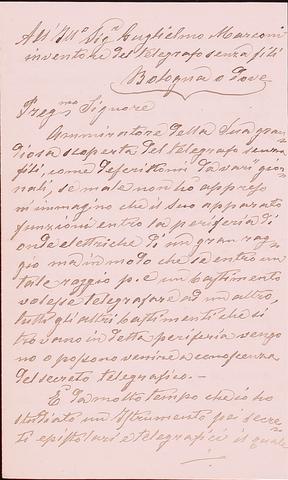 All' Ill.º Sig.r Guglielmo Marconi
inventore del telegrafo senza fili
Bologna o dove
Preg.mo Signore
Ammiratore della Sua gran
diosa scoperta del telegrafo senza
fili, come descrittomi da varî gior-
nali, se male non ho appreso
m'immagino che il suo apparato
funzioni entro la periferia di
onde elettriche di un gran rag
gio ma in modo che se entro un
tale raggio p.e un bastimento
volesse telegrafare ad un altro,
tutti gli altri bastimenti che si
trovano in detta periferia vengo
no o possono venire a conoscenza
del secreto telegrafico. —
È da molto tempo che io ho
studiato un Istrumento pei secre
ti epistolari e telegrafici il quale